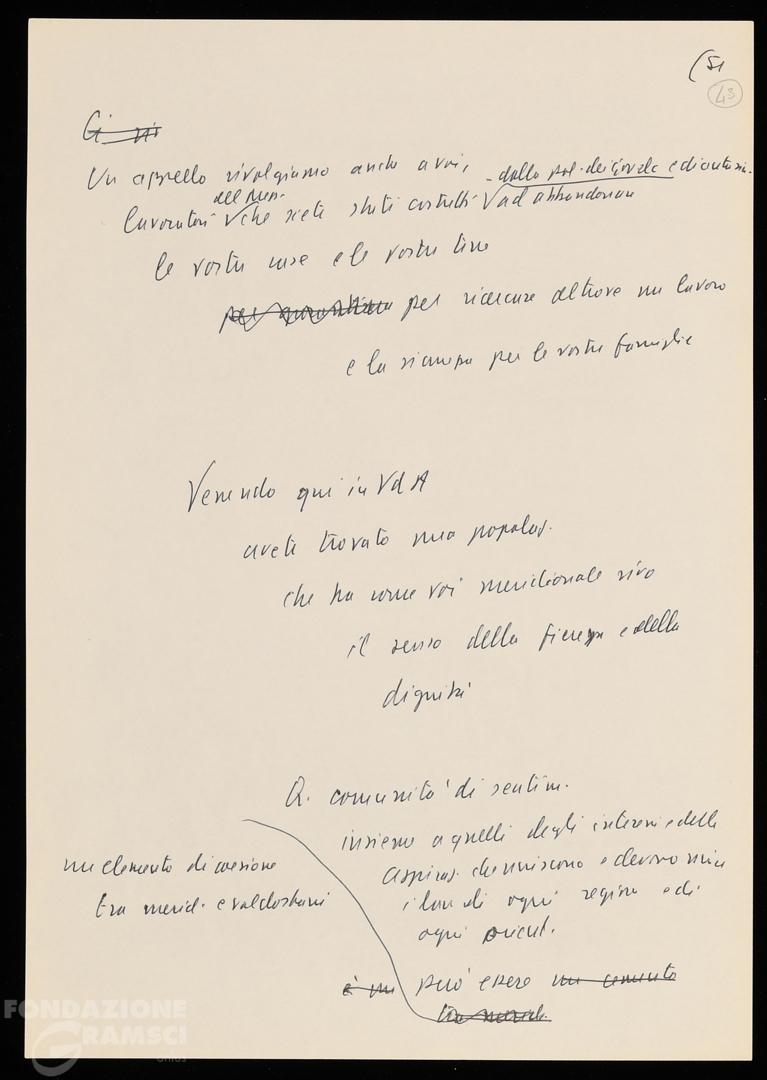 (51
43
Un appello rivolgiamo anche a voi, dalla pol. dei Gov. della
lavoratori del Mer. che siete stati costretti ad abbandonare
le vostre case e le vostre terre
per ricercare altrove un lavoro
e la sicurezza per le vostre famiglie
Venendo qui in VdA
avete trovato una popolaz.
che ha come voi meridionale vivo
il senso della fierezza e della
dignità
Q. comunità di sentim.
insieme a quelli degli interessi e delle
aspiraz. che uniscono e devono unire
i lav. di ogni regione e di
ogni
può essere
un elemento di coesione
tra merid. e valdostani
FONDAZIONE
GRAMSCI
onlus